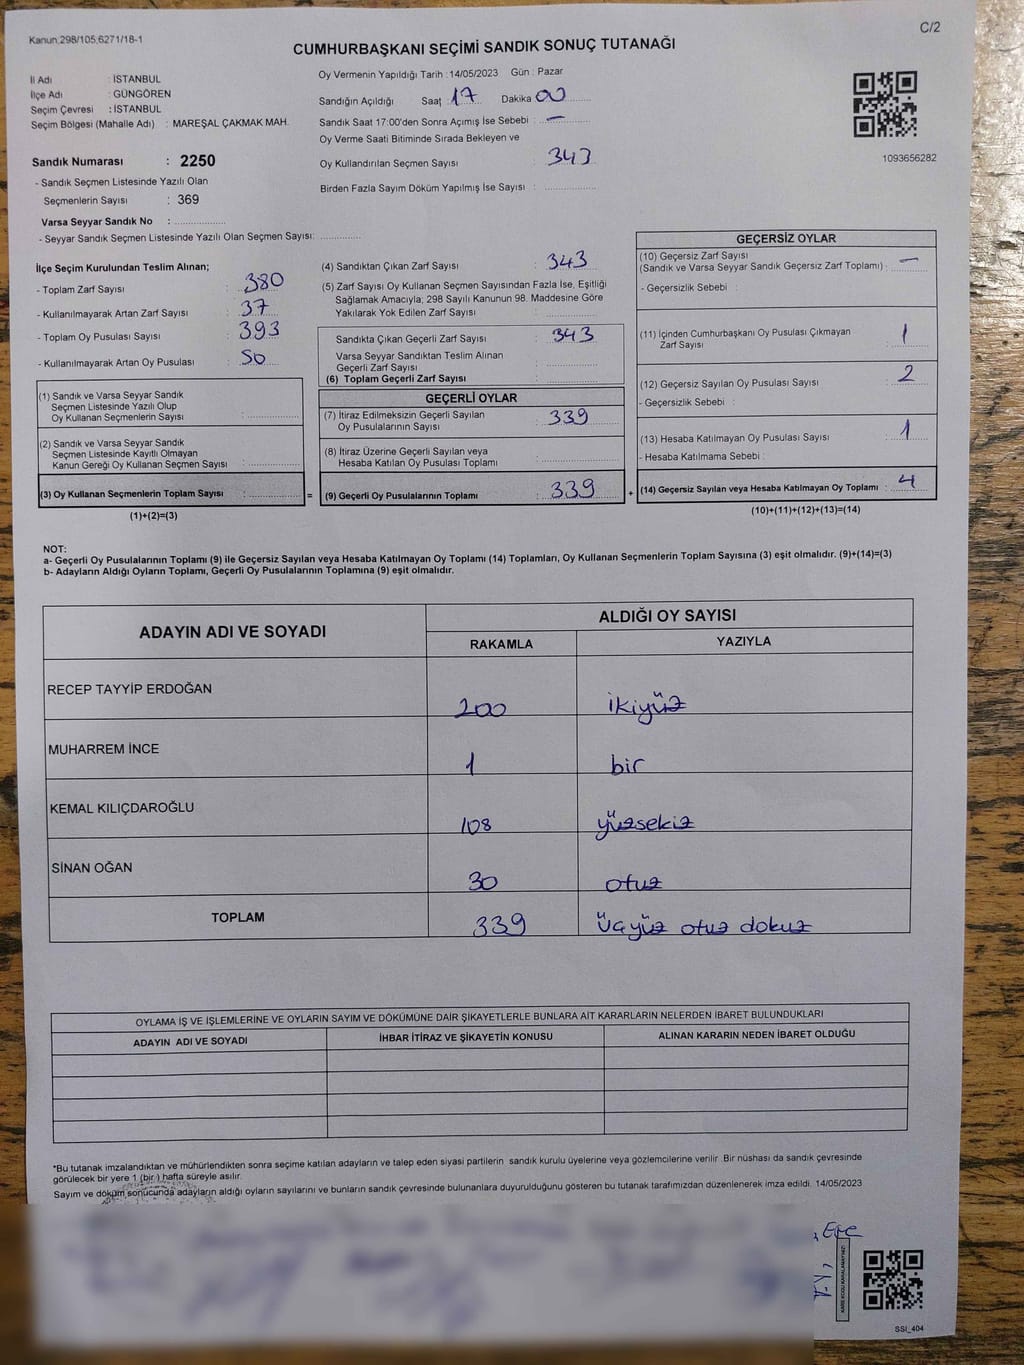 Kanun;298/105;6271/18-1
C/2
CUMHURBAŞKANI SEÇİMİ SANDIK SONUÇ TUTANAĞI
İl Adı : İSTANBUL
İlçe Adı : GÜNGÖREN
Seçim Çevresi : İSTANBUL
Seçim Bölgesi (Mahalle Adı) : MAREŞAL ÇAKMAK MAH.
Sandık Numarası : 2250
- Sandık Seçmen Listesinde Yazılı Olan
Seçmenlerin Sayısı : 369
Varsa Seyyar Sandık No :
- Seyyar Sandık Seçmen Listesinde Yazılı Olan Seçmen Sayısı:
Oy Vermenin Yapıldığı Tarih : 14/05/2023 Gün : Pazar
Sandığın Açıldığı Saat : 17 Dakika 00
Sandık Saat 17:00'den Sonra Açımış İse Sebebi : –
Oy Verme Saati Bitiminde Sırada Bekleyen ve
Oy Kullandırılan Seçmen Sayısı : 343
Birden Fazla Sayım Döküm Yapılmış İse Sayısı :
1093656282
İlçe Seçim Kurulundan Teslim Alınan;
- Toplam Zarf Sayısı : 380
- Kullanılmayarak Artan Zarf Sayısı : 37
- Toplam Oy Pusulası Sayısı : 393
- Kullanılmayarak Artan Oy Pusulası : 50
(1) Sandık ve Varsa Seyyar Sandık
Seçmen Listesinde Yazılı Olup
Oy Kullanan Seçmenlerin Sayısı :
(2) Sandık ve Varsa Seyyar Sandık
Seçmen Listesinde Kayıtlı Olmayan
Kanun Gereği Oy Kullanan Seçmen Sayısı :
(3) Oy Kullanan Seçmenlerin Toplam Sayısı :
(1)+(2)=(3)
(4) Sandıktan Çıkan Zarf Sayısı : 343
(5) Zarf Sayısı Oy Kullanan Seçmen Sayısından Fazla İse, Eşitliği
Sağlamak Amacıyla; 298 Sayılı Kanunun 98. Maddesine Göre
Yakılarak Yok Edilen Zarf Sayısı :
Sandıkta Çıkan Geçerli Zarf Sayısı : 343
Varsa Seyyar Sandıktan Teslim Alınan
Geçerli Zarf Sayısı :
(6) Toplam Geçerli Zarf Sayısı :
GEÇERLİ OYLAR
(7) İtiraz Edilmeksizin Geçerli Sayılan
Oy Pusulalarının Sayısı : 339
(8) İtiraz Üzerine Geçerli Sayılan veya
Hesaba Katılan Oy Pusulası Toplamı :
= (9) Geçerli Oy Pusulalarının Toplamı : 339
GEÇERSİZ OYLAR
(10) Geçersiz Zarf Sayısı
(Sandık ve Varsa Seyyar Sandık Geçersiz Zarf Toplamı) : –
- Geçersizlik Sebebi :
(11) İçinden Cumhurbaşkanı Oy Pusulası Çıkmayan
Zarf Sayısı : 1
(12) Geçersiz Sayılan Oy Pusulası Sayısı : 2
- Geçersizlik Sebebi :
(13) Hesaba Katılmayan Oy Pusulası Sayısı : 1
- Hesaba Katılmama Sebebi :
+ (14) Geçersiz Sayılan veya Hesaba Katılmayan Oy Toplamı : 4
(10)+(11)+(12)+(13)=(14)
NOT:
a- Geçerli Oy Pusulalarının Toplamı (9) ile Geçersiz Sayılan veya Hesaba Katılmayan Oy Toplamı (14) Toplamları, Oy Kullanan Seçmenlerin Toplam Sayısına (3) eşit olmalıdır. (9)+(14)=(3)
b- Adayların Aldığı Oyların Toplamı, Geçerli Oy Pusulalarının Toplamına (9) eşit olmalıdır.
ADAYIN ADI VE SOYADI
ALDIĞI OY SAYISI
RAKAMLA YAZIYLA
RECEP TAYYİP ERDOĞAN 200 ikiyüz
MUHARREM İNCE 1 bir
KEMAL KILIÇDAROĞLU 108 yüzsekiz
SİNAN OĞAN 30 otuz
TOPLAM 339 üçyüz otuz dokuz
OYLAMA İŞ VE İŞLEMLERİNE VE OYLARIN SAYIM VE DÖKÜMÜNE DAİR ŞİKAYETLERLE BUNLARA AİT KARARLARIN NELERDEN İBARET BULUNDUKLARI
ADAYIN ADI VE SOYADI İHBAR İTİRAZ VE ŞİKAYETİN KONUSU ALINAN KARARIN NEDEN İBARET OLDUĞU
*Bu tutanak imzalandıktan ve mühürlendikten sonra seçime katılan adayların ve talep eden siyasi partilerin sandık kurulu üyelerine veya gözlemcilerine verilir. Bir nüshası da sandık çevresinde
görülecek bir yere 1 (bir ) hafta süreyle asılır.
Sayım ve döküm sonucunda adayların aldığı oyların sayılarını ve bunların sandık çevresinde bulunanlara duyurulduğunu gösteren bu tutanak tarafımızdan düzenlenerek imza edildi. 14/05/2023
SSI_404